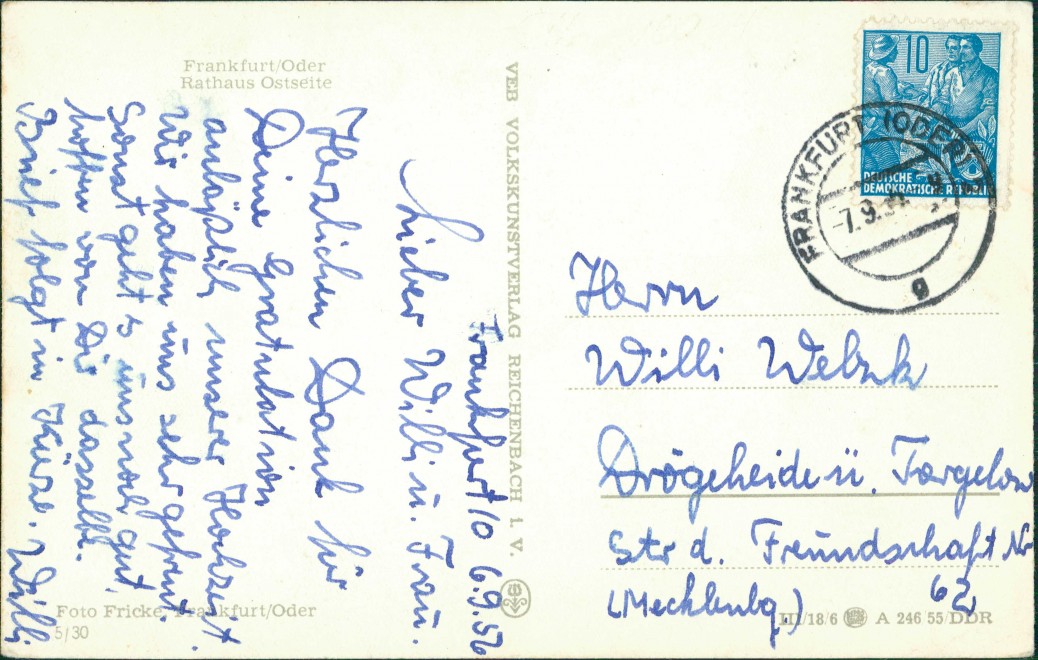 Frankfurt/Oder
Rathaus Ostseite
Frankfurt/O 6.9.56
Lieber Willi u. Frau.
Herzlichen Dank für
Deine Gratulation
anläßlich unserer Hochzeit.
Wir haben uns sehr gefreut.
Sonst geht es uns noch gut,
hoffen von Dir dasselbe.
Brief folgt in Kürze. Willi
Foto Fricke, Frankfurt/Oder
5/30
VEB VOLKSKUNSTVERLAG REICHENBACH i. V.
10
DEUTSCHE
DEMOKRATISCHE REPUBLIK
FRANKFURT (ODER)
-7.9.
g
Herrn
Willi
Drögeheide ü. Torgelow
Str d. Freundschaft Nr
62
(Mecklenbg.)
III/18/6 A 246 55/DDR